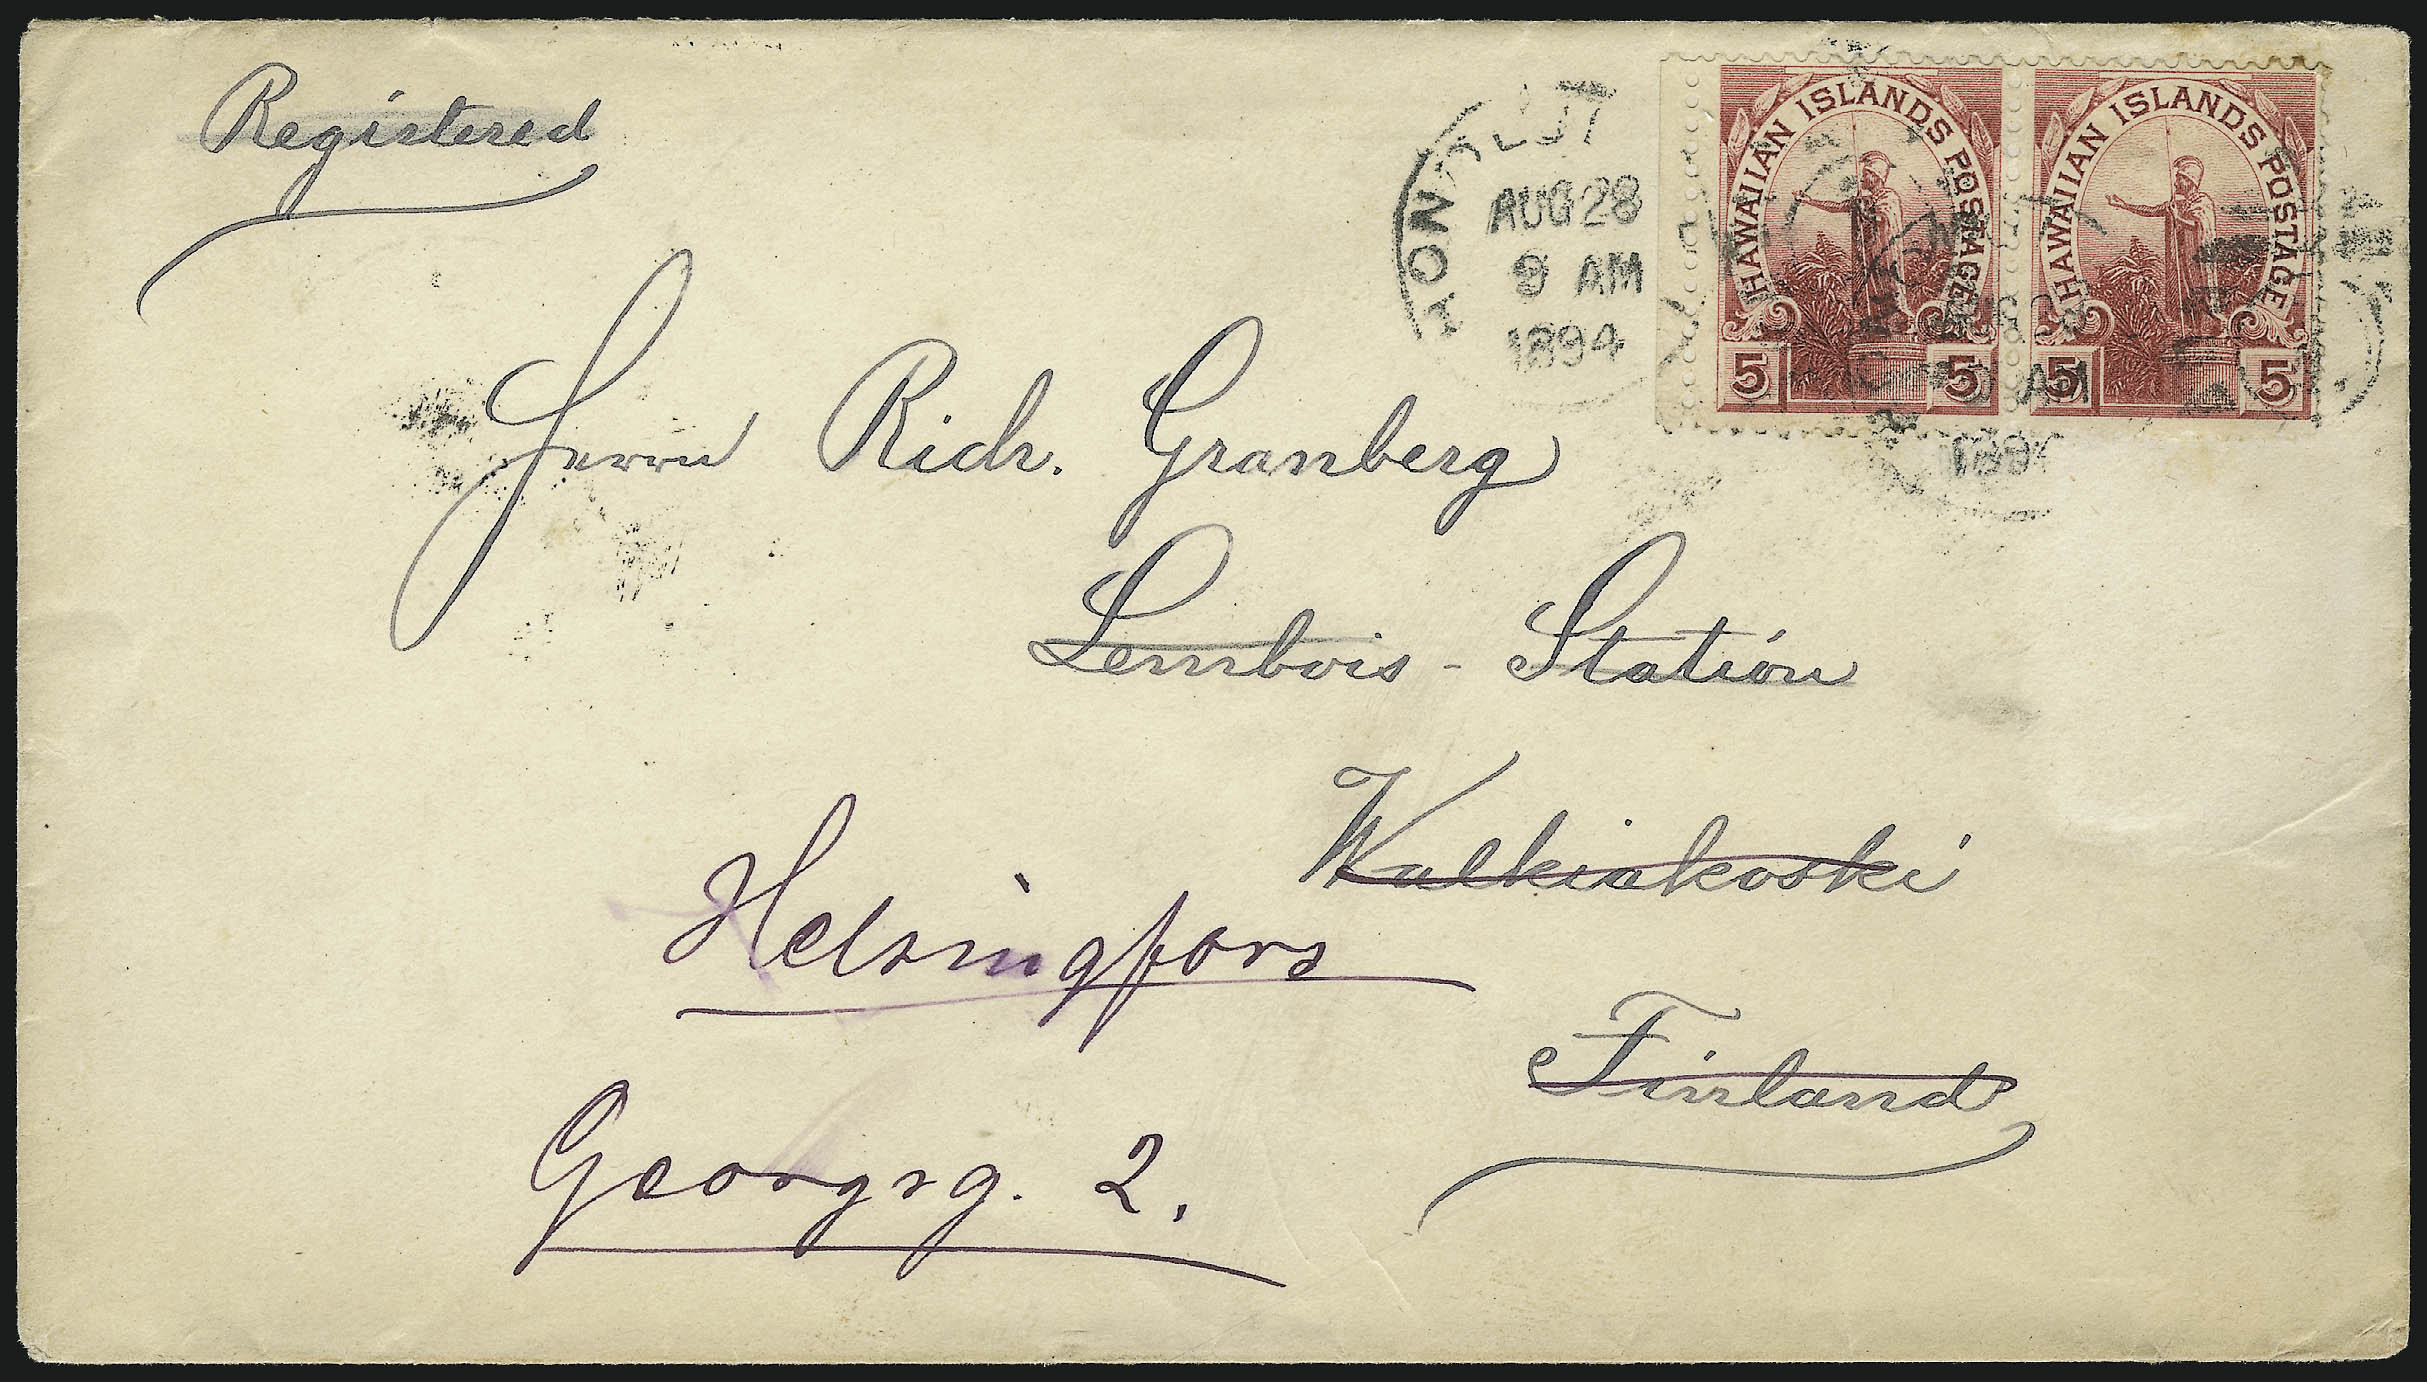 Registered
HONOLULU
AUG 28
9 AM
1894
HAWAIIAN ISLANDS POSTAGE
5 5
HAWAIIAN ISLANDS POSTAGE
5 5
AM
189
Herrn Rich. Granberg
Lembois - Station
Walkiakoski
Helsingfors
Finland
Georgsg. 2.